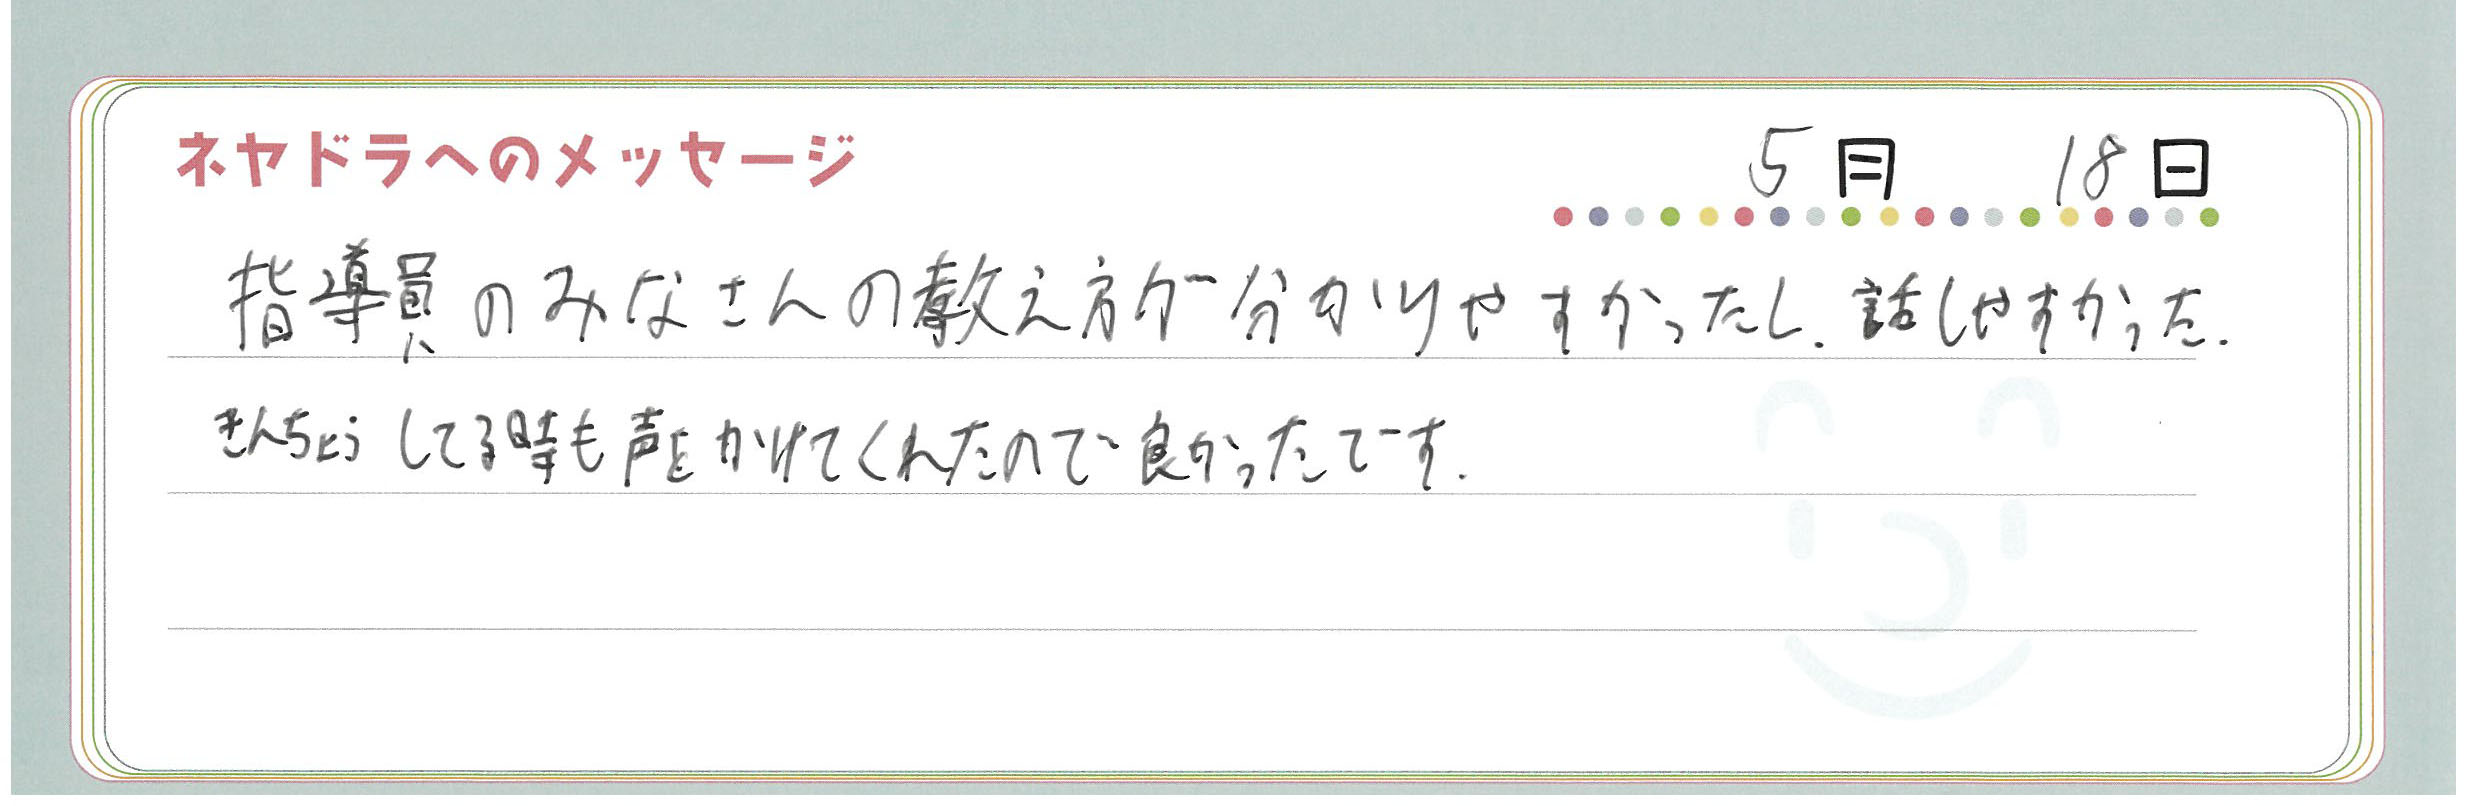 ネヤドラへのメッセージ
5月 18日
指導員のみなさんの教え方が分かりやすかったし.話しやすかった.
きんちょうしてる時も声をかけてくれたので良かったです.